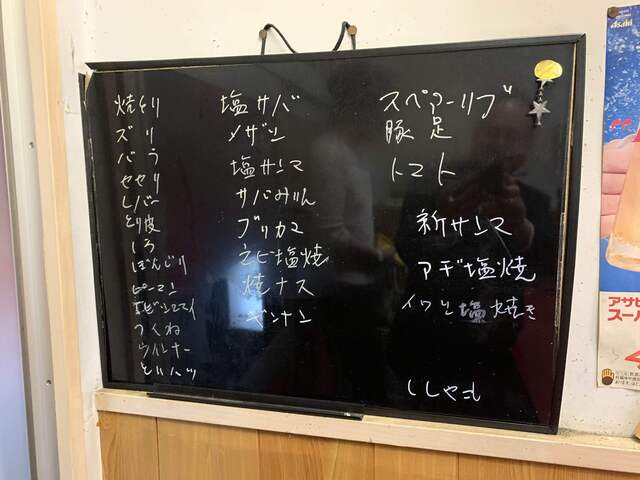 焼とり
ズリ
バラ
セセリ
レバー
とり皮
しろ
ぼんじり
ピーマン
つくね
ウインナー
とりハツ
塩サバ
メザシ
塩サンマ
サバみりん
ブリカマ
エビ塩焼
焼ナス
ギンナン
スペアーリブ
豚足
トマト
新サンマ
アヂ塩焼
イワシ塩焼き
ししゃも
Asahi
アサヒ
スーパ